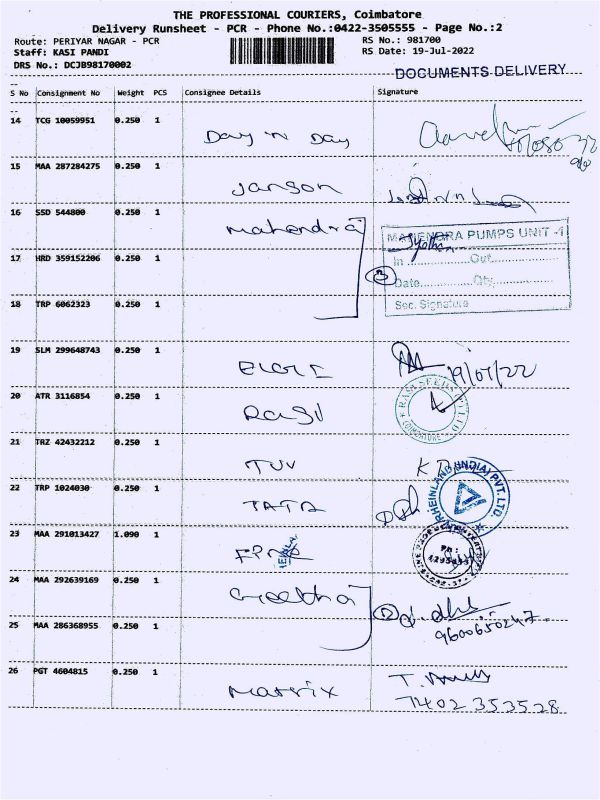 THE PROFESSIONAL COURIERS, Coimbatore
Delivery Runsheet - PCR - Phone No.:0422-3505555 - Page No.:2
Route: PERIYAR NAGAR - PCR RS No.: 981700
Staff: KASI PANDI RS Date: 19-Jul-2022
DRS No.: DCJB98170002
DOCUMENTS DELIVERY
S No Consignment No Weight PCS Consignee Details Signature
14 TCG 10059951 0.250 1 Day 'N Day
15 MAA 287284275 0.250 1 Janson
16 SSD 544800 0.250 1 Mahendra
MAHENDRA PUMPS UNIT -1
17 HRD 359152206 0.250 1
In ............ Out ............
3
Date ............ Qty ............
18 TRP 6062323 0.250 1
Sec. Signature
19 SLM 299648743 0.250 1 ELGI
19/07/22
20 ATR 3116854 0.250 1 Rasi
RASI SEEDS (P) LTD
COIMBATORE
21 TRZ 42432212 0.250 1 TUV
22 TRP 1024030 0.250 1 TATA
RHEINLAND (INDIA) PVT. LTD.
23 MAA 291013427 1.090 1
Ph :
24 MAA 292639169 0.250 1 Geetha
2
9600650247
25 MAA 286368955 0.250 1
26 PGT 4604815 0.250 1 Matrix
7402353528